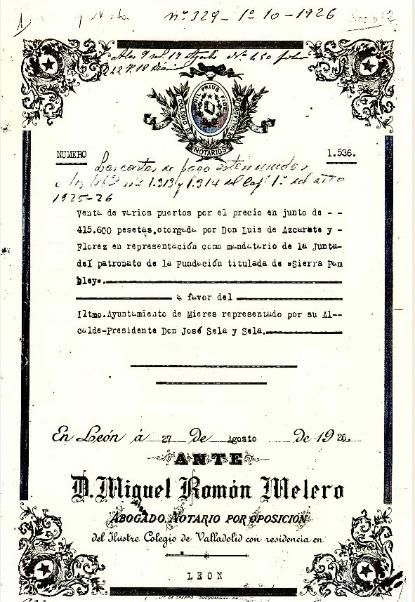 nº 329 - 1º 10 - 1926
NIHIL PRIUS FIDE
NUMERO 1.536.
Las cartas de pago están unidas
nos 1.913 y 1.914 del Legº 1º del año
1925-26
Venta de varios puertos por el precio en junto de - -
415.600 pesetas, otorgada por Don Luis de Azcarate y -
Florez en representación como mandatario de la Junta-
del patronato de la Fundación titulada de "Sierra Pam
bley".
a favor del
Iltmo. Ayuntamiento de Mieres representado por su Al--
calde-Presidente Don José Sela y Sela.
En León á 27 de Agosto de 1926.
ANTE
D. Miguel Román Melero
ABOGADO NOTARIO POR OPOSICIÓN
del Ilustre Colegio de Valladolid con residencia en
LEON